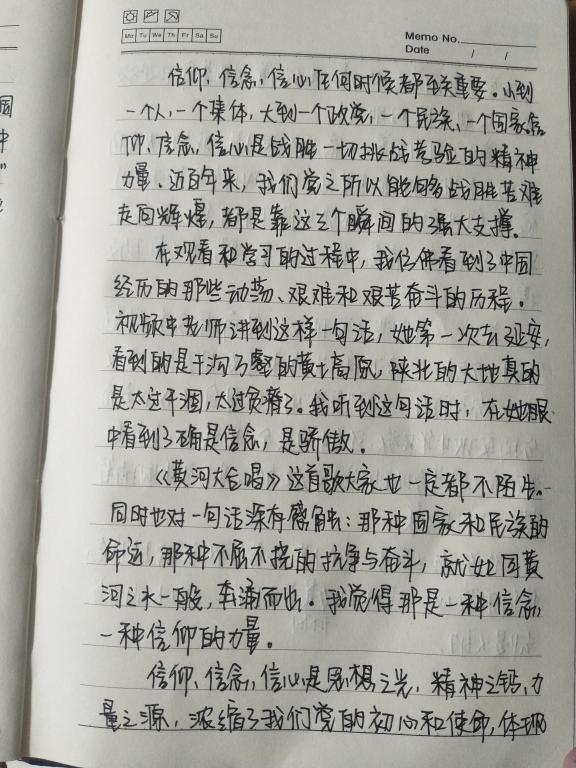 Mo Tu We Th Fr Sa Su
Memo No.
Date / /
信仰、信念、信心任何时候都至关重要。小到
一个人、一个集体,大到一个政党、一个民族、一个国家,信
仰、信念、信心是战胜一切挑战考验的精神
力量。近百年来,我们党之所以能够战胜苦难
走向辉煌,都是靠这三个瞬间的强大支撑。
在观看和学习的过程中,我仿佛看到了中国
经历的那些动荡、艰难和艰苦奋斗的历程。
视频中老师讲到这样一句话,她第一次去延安,
看到的是千沟万壑的黄土高原,陕北的大地真的
是太过干涸,太过贫瘠了。我听到这句话时,在她眼
中看到了确是信念,是骄傲。
《黄河大合唱》这首歌大家也一定都不陌生。
同时也对一句话深有感触:那种国家和民族的
命运,那种不屈不挠的抗争与奋斗,就如同黄
河之水一般,奔涌而出。我觉得那是一种信念,
一种信仰的力量。
信仰、信念、信心是思想之光,精神之钙,力
量之源,浓缩了我们党的初心和使命,体现
国
中